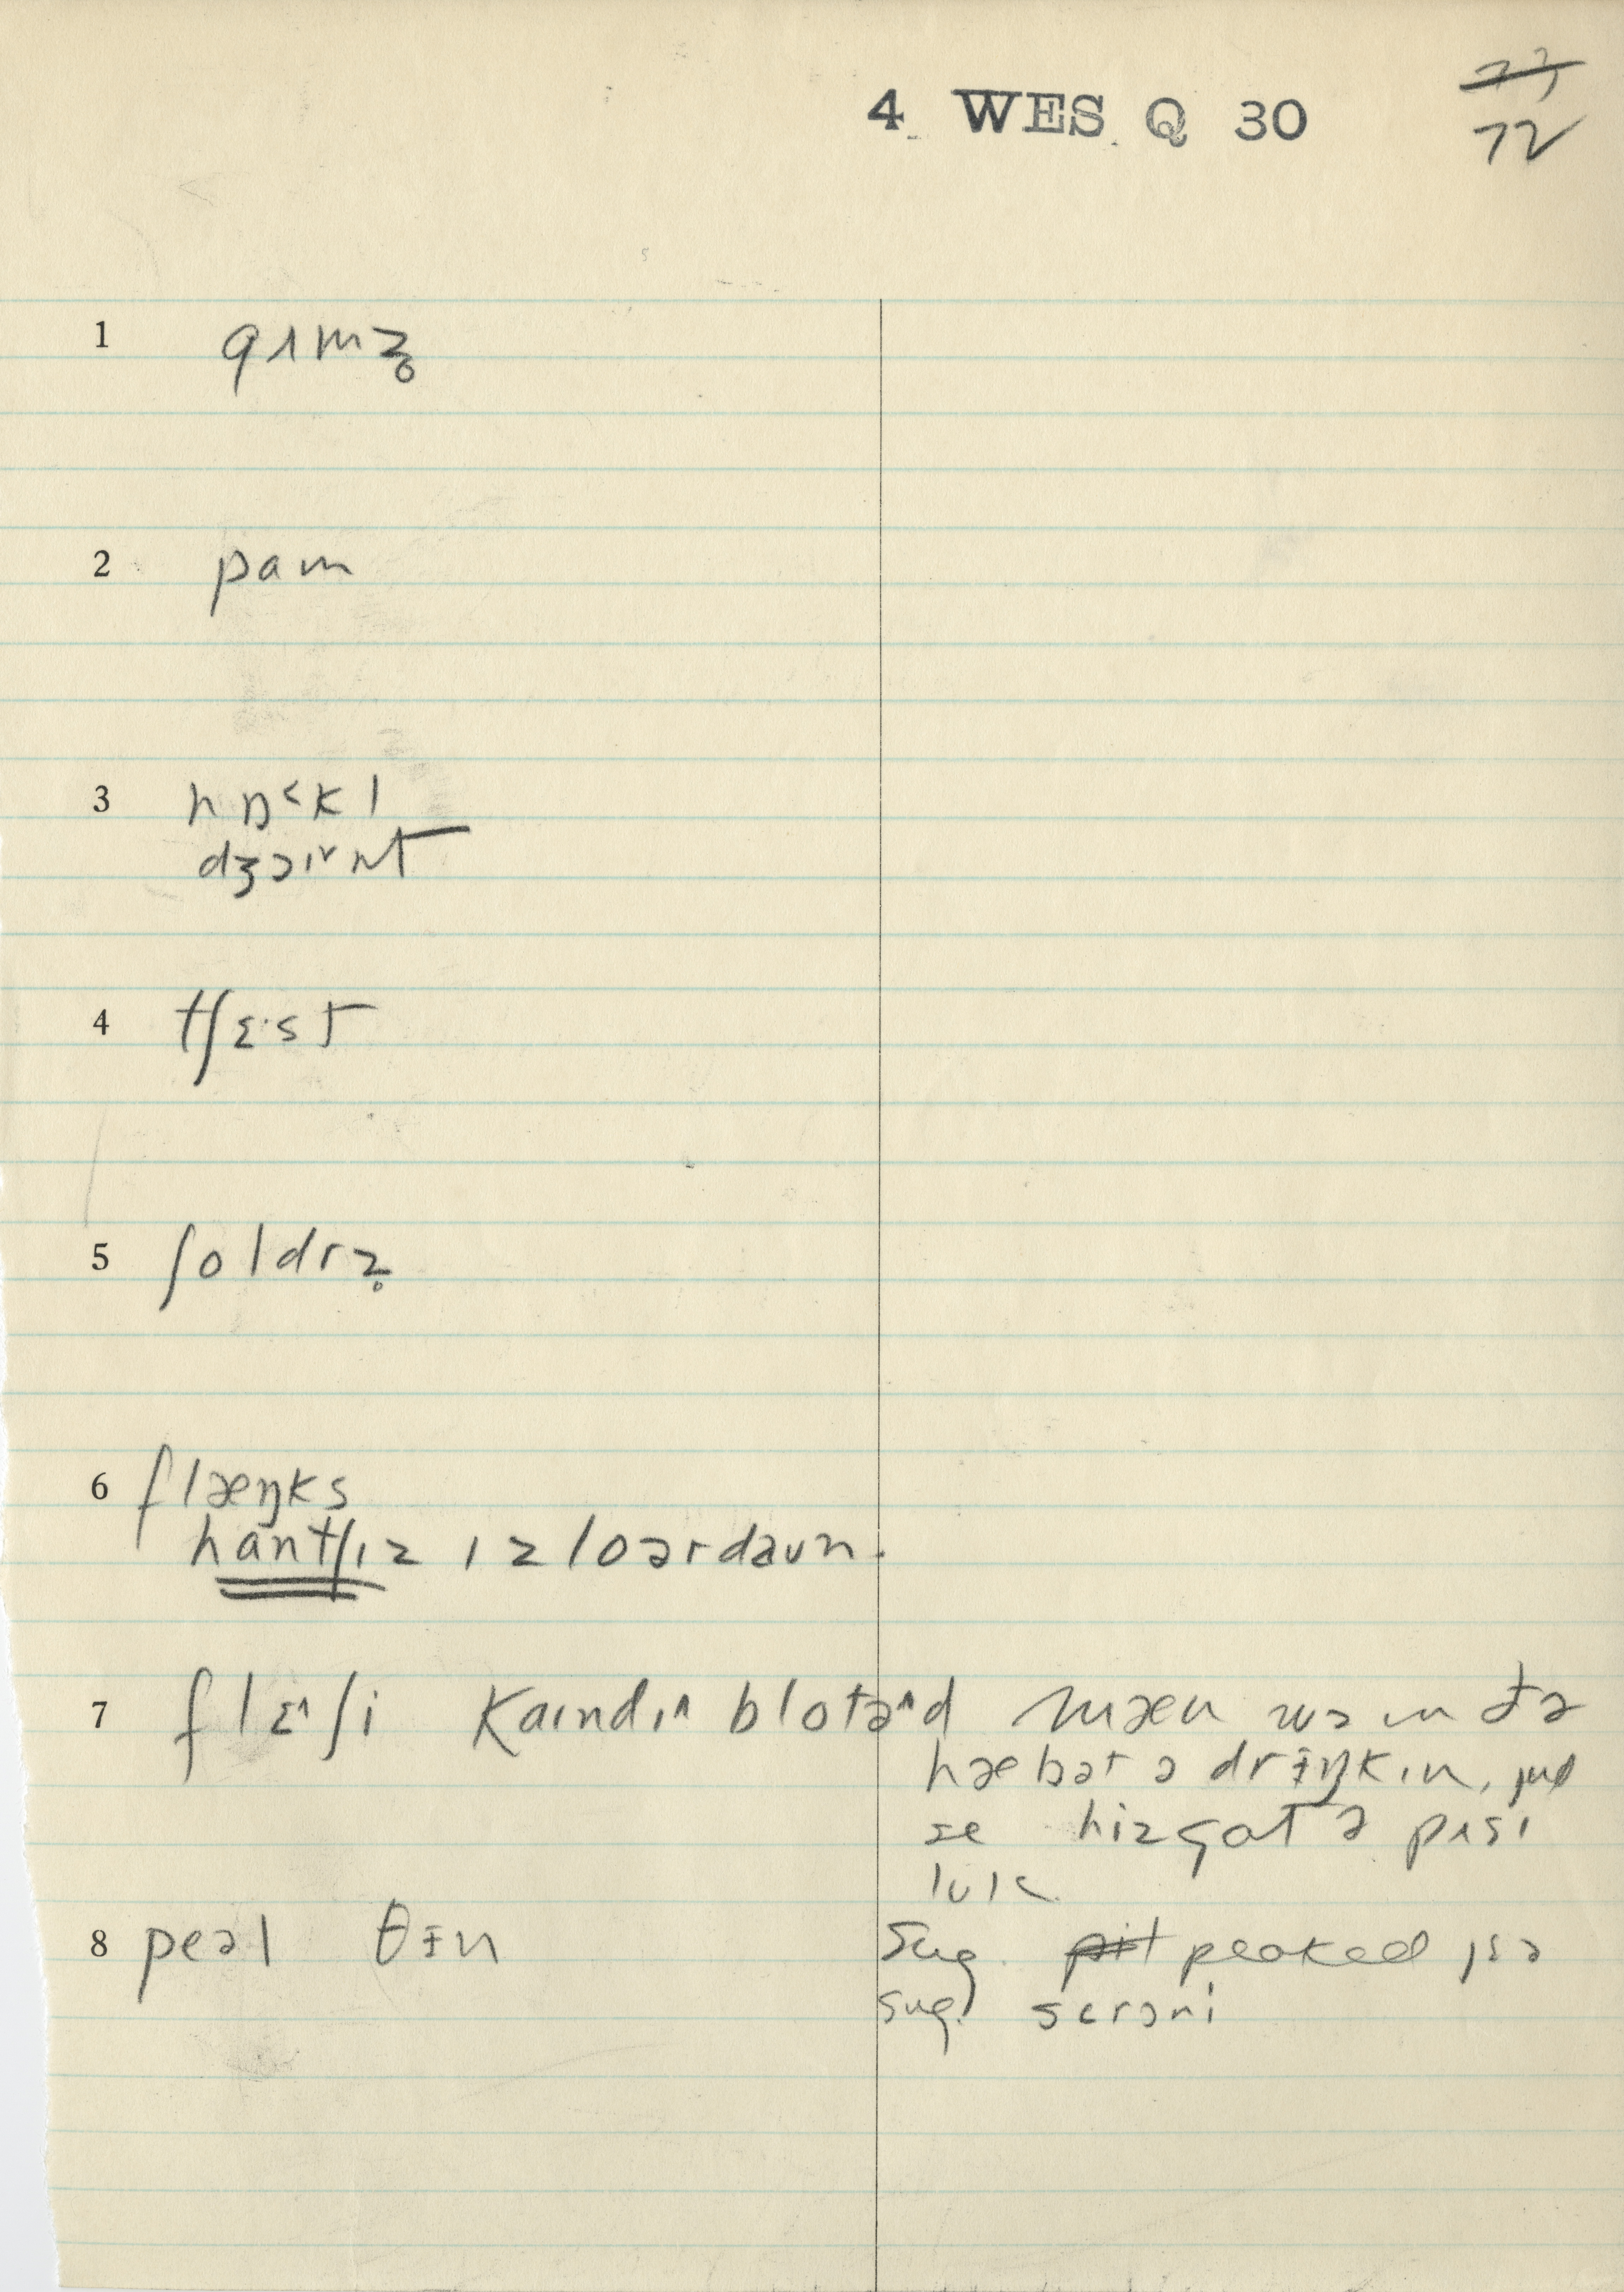 4 WES Q 30
72
1 gʌmz̥
2 pam
3 nɒ˂kl
dʒɔɪ˅nt
4 tʃɛ·st
5 ʃoldrz̥
6 flæŋks
hantʃɪz ɪz loərdaʊn.
7 flɛ˄ʃi kaɪndɪ˄ blotə˄d mæn wə ðə
hæbət ə drɨŋkɪn,
se hizgat ə pʌsɪ
lʊk
8 peəl θɨn Sug. peaked
sug. scrɔni